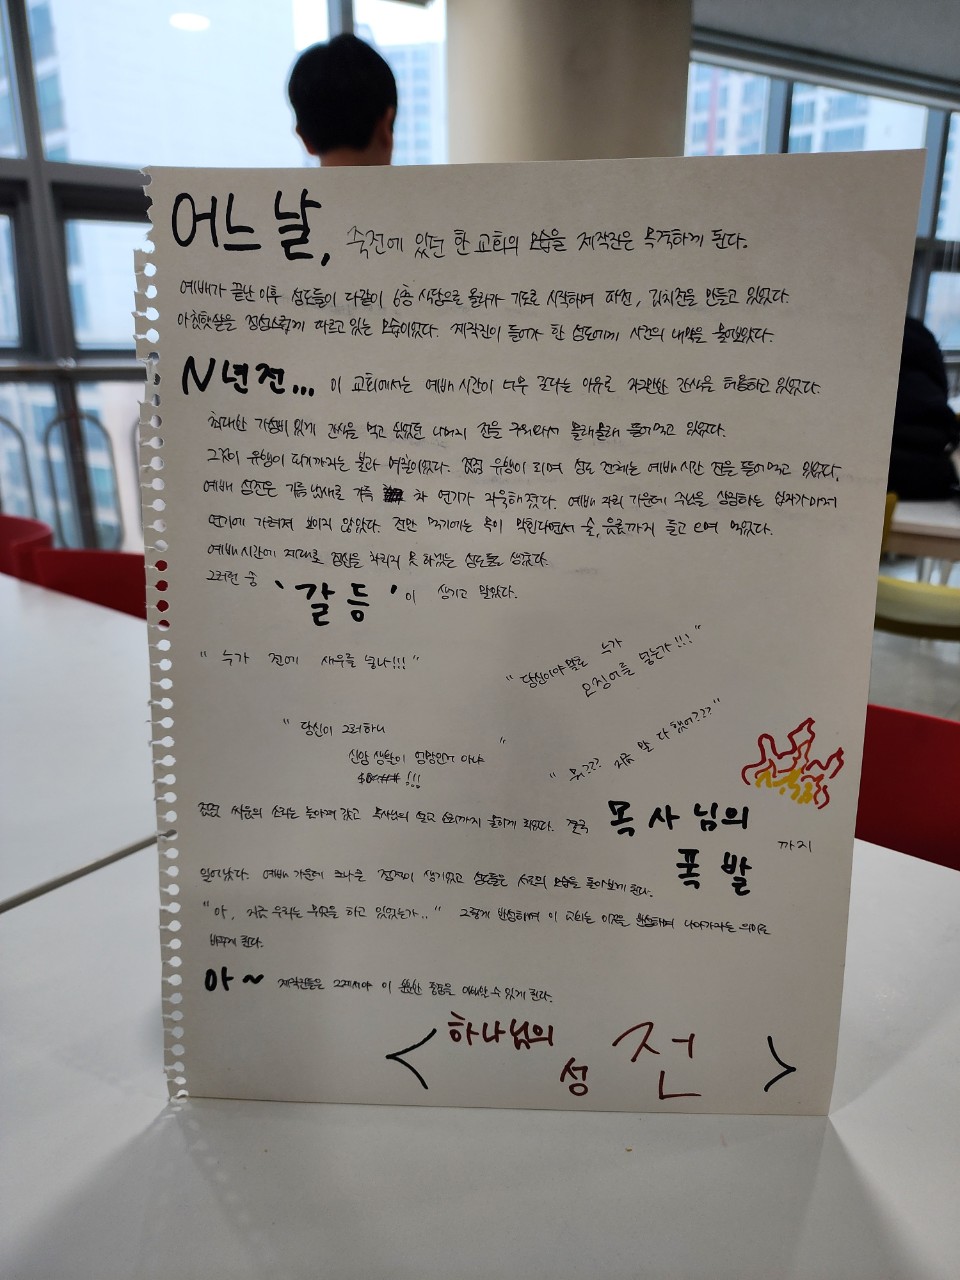 어느 날, 죽전에 있던 한 교회의 모습을 제작진은 목격하게 된다.
예배가 끝난 이후 성도들이 다같이 6층 식당으로 올라가 기도로 시작하며 파전, 김치전을 만들고 있었다.
아침햇살을 정성스럽게 따르고 있는 모습이었다. 제작진이 들어가 한 성도에게 사건의 내막을 물어보았다.
N년 전... 이 교회에서는 예배 시간이 너무 길다는 이유로 자그만한 간식을 허용하고 있었다.
최대한 가성비 있게 간식을 먹고 싶었던 나머지 전을 구워와서 몰래몰래 들어먹고 있었다.
그것이 유행이 되기까지는 불과 며칠이었다. 점점 유행이 되며 성도 전체는 예배 시간 전을 들어먹고 있었다.
예배 성전은 기름 냄새로 가득 차 연기가 자욱해졌다. 예배 자리 가운데 주님을 상징하는 십자가마저
연기에 가려져 보이지 않았다. 전만 먹기에는 목이 막힌다면서 술, 음료까지 들고 오며 먹었다.
예배 시간에 제대로 정신을 차리지 못 하겠는 성도들도 생겼다.
그러던 중 '갈등' 이 생기고 말았다.
" 누가 전에 새우를 넣나!!! "
" 당신이야말로 누가
오징어를 넣는가!!! "
" 당신이 그러하니
신앙 생활이 엉망인거 아냐
!!! "
" 뭐??? 지금 말 다 했어??? "
점점 싸움의 소리는 높아져 갔고 목사님의 설교 소리까지 묻히게 되었다. 결국 목사님의
폭발 까지
일어났다. 예배 가운데 크나큰 정적이 생기었고 성도들은 서로의 모습을 돌아보게 된다.
"아, 지금 우리는 무엇을 하고 있었는가.." 그렇게 반성하며 이 교회는 이것을 반성하며 나아가자는 의미로
바꾸게 된다.
아~ 제작진들은 그제서야 이 풍경을 이해할 수 있게 된다.
< 하나님의
성 전 >